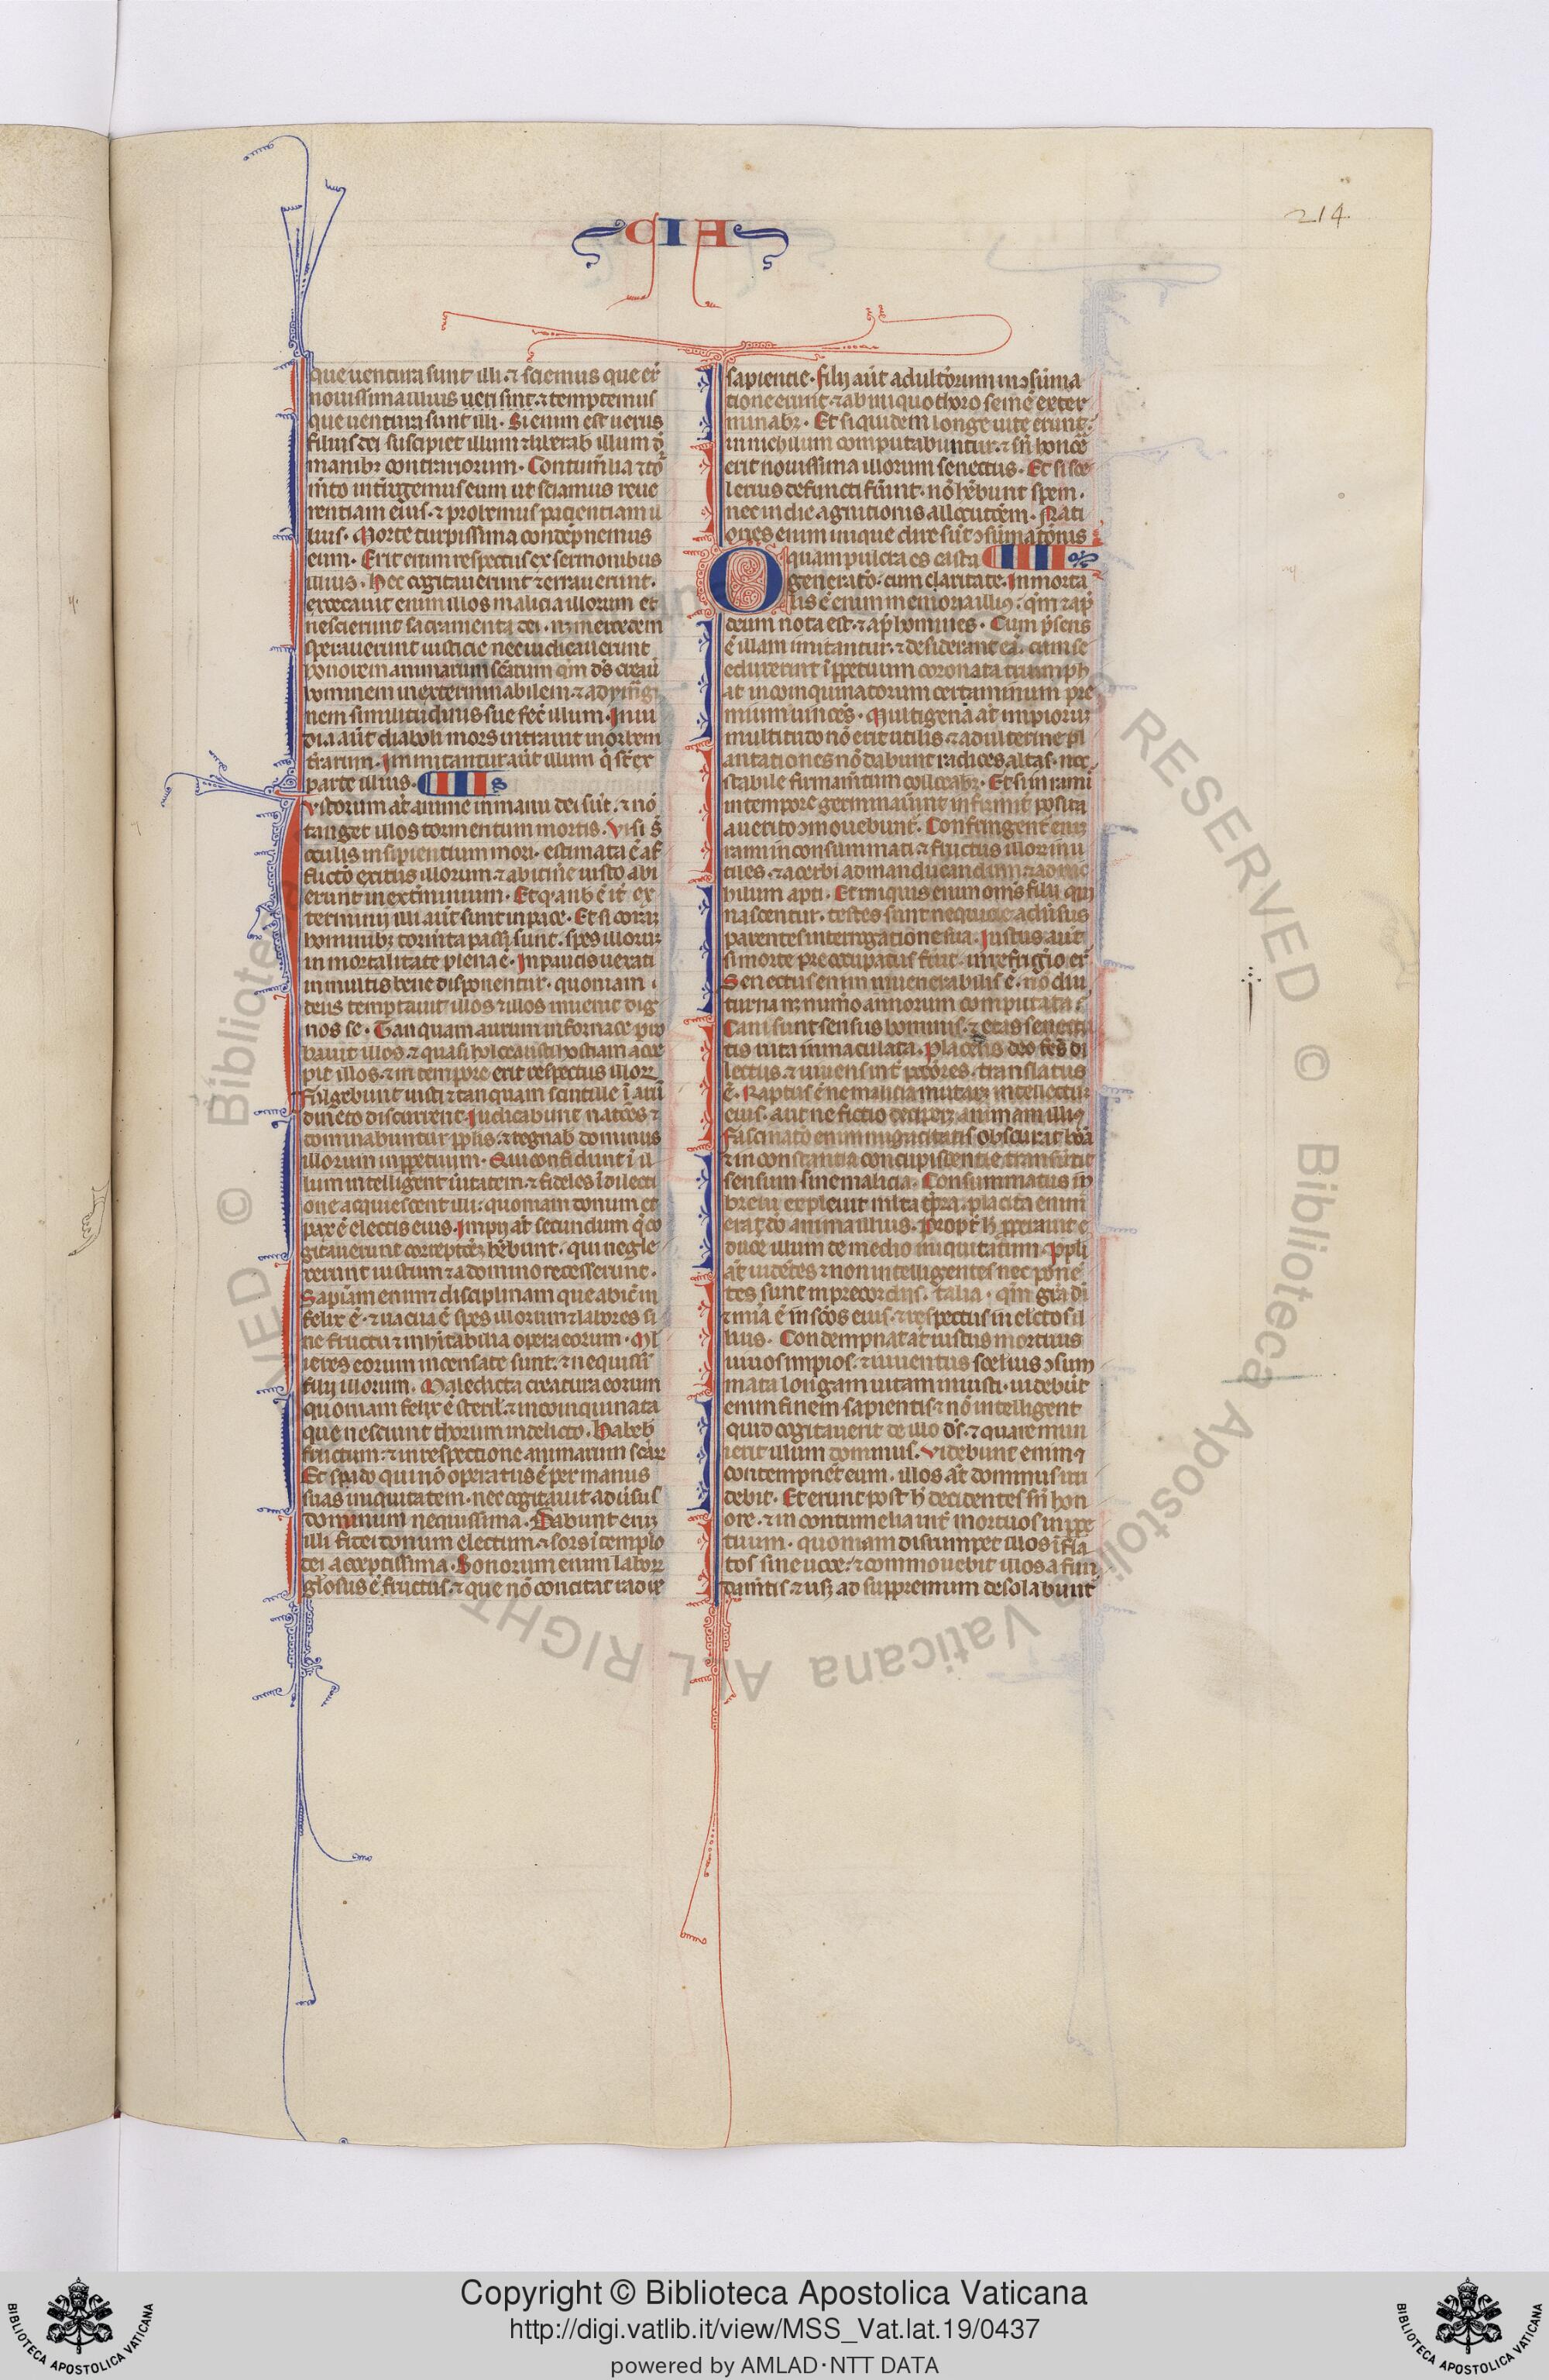 214
CIA
que uentura sunt illi·⁊ sciemus que er̄t
nouissima illius ueri sint·⁊ temptemus
que uentura sunt illi· Si enim est uerus
filius dei suscipiet illum ⁊ liberab illum d̄
manibꝫ contrariorum· Contum̄lia ⁊ to
m̄to int̄rogemus eum ut sciamus reue
rentiam eius·⁊ probemus pacientiam il
lius· Morte turpissima condēpnemus
eum· Erit enim respectus ex sermonibus
illius· Hec cogitauerunt ⁊ errauerunt·
excecauit enim illos malicia illorum et
nescierunt sacramenta dei· nꝫ mercedem
sperauerunt iusticie nec iudicauerunt
honorem animarum sc̄arum qm̄ ds̄ creau̅
hominem inexterminabilem·⁊ ad ymag̅
nem similitudinis sue fec̄ illum· Inui
dia aūt diaboli mors intrauit in orbem
t̄rarum· Immitantur aūt illum q̄ st̄ ex
parte illius· III
Vstorum at̄ anime in manu dei sūt·⁊ nō
tanget illos tormentum mortis· Visi s̄
oculis insipientium mori· estimata ē af
flictō exitus illorum·⁊ ab itin̄e iusto abi
erunt in ext̄minium· Et q a nob̄ ē it̄ ex
terminij illi aūt sunt in pace· Et si coraꝫ
hominibꝫ torm̄ta passi sunt· spes illoruꝫ
inmortalitate plena ē· In paucis uexati
in multis bene disponentur· quoniam
deus temptauit illos ⁊ illos inuenit dig
nos se· Tanquam aurum in fornace pro
bauit illos·⁊ quasi holocausti hostiam acce
pit illos·⁊ in tempore erit respectus illoꝝ
Fulgebunt iusti ⁊ tanquam scintille ī aru̅
dineto discurrent· Iudicabunt natōes ⁊
dominabuntur pplis·⁊ regnab dominus
illorum inppetuum· Qui confidunt ī il
lum intelligent uītatem·⁊ fideles ī dilecti
one acquiescent illi· quoniam donum et
pax ē electis eius· Impij at̄ secundum q̄ co
gitauerunt correptōeꝫ hēbunt· qui negle
xerunt iustum ⁊ a domino recesserunt·
Sapiam̄ enim ⁊ disciplinam que abic̄ in
felix ē·⁊ uacua ē spes illorum ⁊ labores si
ne fructu ⁊ inhitabilia opera eorum· Ml
ieres eorum insensate sunt·⁊ nequissi̅
filij illorum· Maledicta creatura eorum
quoniam felix ē steril·⁊ incoinquinata
que nesciuit thorum in delicto· Habeb
fructum·⁊ in respectione animarum sc̄aꝝ
Et spado qui nō operatus ē per manus
suas iniquitatem· nec cogitauit aduīsus
dominum nequissima· Dabunt̄ eniꝫ
illi fidei donum electum·⁊ sors ī templo
dei acceptissima· Bonorum enim laboꝝ
gl̄osus ē fructus·⁊ que nō concidat radix
sapientie· Filij aūt adultōrum in ɔsūma
tione erunt·⁊ ab iniquo thoro semē exter
minabꝫ· Et si quidem longe uite erunt·
in nichilum computabuntur·⁊ sn̄ honoē
erit nouissima illorum senectus· Et si ce
lerius defuncti fūint· nō hēbunt spem·
nec in die agnitionis allocutōem· Nati
ones enim inique dire sūt ɔsūmatōnis
O quam pulcra es casta IIII
generatō· cum claritate· Inmorta
lis ē enim memoria illiꝰ· qm̄ ⁊ ap̄
deum nota est·⁊ ap̄ homines· Cum p̄sens
ē illam imitantur·⁊ desiderant eā· cum se
eduxerint̄ ī ppetuum coronata triumph
at incoinquinatorum certaminum pre
mium uincēs· Multigena at̄ impioruꝫ
multitudo nō erit utilis·⁊ adulterine pl
antationes nō dabunt radices altas· nec
stabile firmam̄tum collocabꝫ· Et si in rami
in tempore germinauīnt infirmit̄ posita
a uento ɔmouebunt̄· Confringent̄ eniꝫ
rami inconsummati ⁊ fructus illoꝝ inu
tiles·⁊ acerbi ad manducandum ⁊ ad nic
hilum apti· Et iniquis enim oms̄ filij qui
nascentur· testes sunt nequicie aduīsus
parentes interrogatione sua· Iustus aūt
si morte preoccupatus fūit· in refrigio er̄
Senectus enim uenerabilis ē· nō diu
turna nꝫ num̄o annorum computata·
Cani sunt sensus hominis·⁊ etas senectu
tis uita inmaculata· Placens deo fc̄s di
lectus·⁊ uiuens int̄ pcc̄ores· translatus
ē· Raptus ē ne malicia mutarꝫ intellectuꝫ
eius· aut ne fictio deciperꝫ animam illiꝰ
Fascinatō enim nugacitatis obscurat boa̅
⁊ inconstantia concupiscentie transūtit
sensum sine malicia· Consummatus in̅
breui expleuit mlta t̄pra· placita enim
erat do̅ anima illius· Propt̄ h pperauit e
ducē illum de medio iniquitatum· Ppli
at̄ uidētes ⁊ non intelligentes nec ponē
tes sunt in precordijs· talia· qm̄ gr̄a di
⁊ mīa ē in sc̄os eius·⁊ respectus in elc̄tos il
lius· Condempnat at̄ iustus mortuus
uiuos impios·⁊ iuuentus scel̄ius ɔsum
mata longam uitam iniusti· uidebūt
enim finem sapientis ⁊ nō intelligent
quid cogitauerit de illo ds̄·⁊ quare mun
ierit illum dominus· Videbunt enim ⁊
contempnet̄ eum· illos at̄ dominus irri
debit· Et erunt post h decidentes sn̄ hon
ore·⁊ in contumelia int̄ mortuos in ppe
tuum· quoniam disrumpet illos īfla
tos sine uoce·⁊ commouebit illos a fun
dam̄tis ⁊ usꝫ ad suppremum desolabunt̄
Copyright © Biblioteca Apostolica Vaticana
http://digi.vatlib.it/view/MSS_Vat.lat.19/0437
powered by AMLAD·NTT DATA